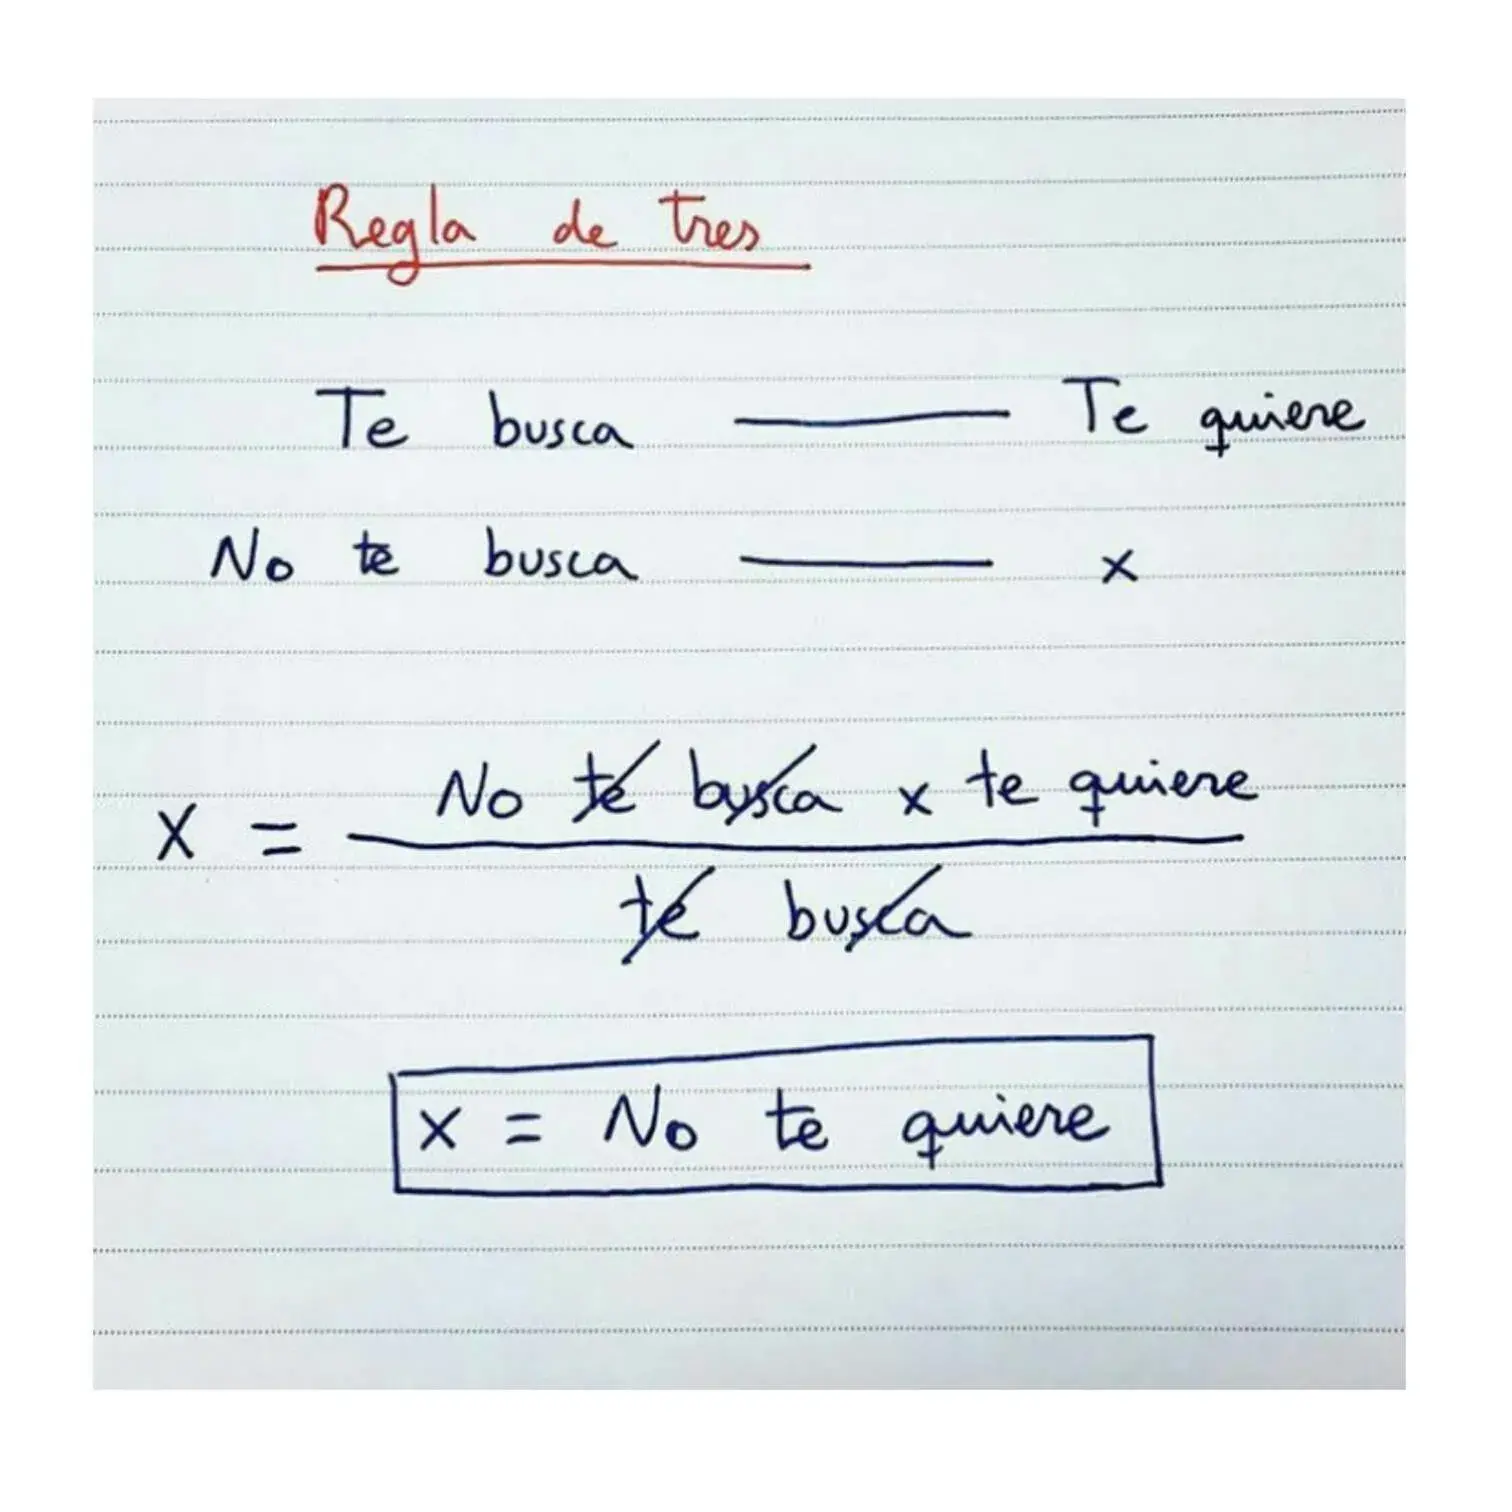 Regla de tres
Te busca —— Te quiere
No te busca —— x
No te busca x te quiere
X = ——
te busca
x = No te quiere